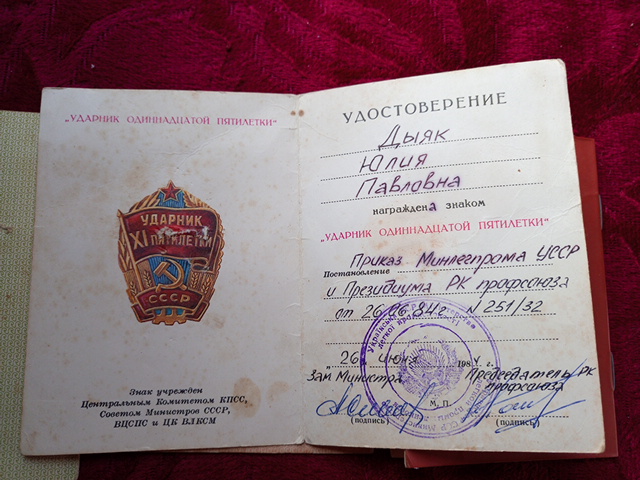 „УДАРНИК ОДИННАДЦАТОЙ ПЯТИЛЕТКИ“
УДАРНИК
XI ПЯТИЛЕТКИ
СССР
Знак учрежден
Центральным Комитетом КПСС,
Советом Министров СССР,
ВЦСПС и ЦК ВЛКСМ
УДОСТОВЕРЕНИЕ
Дыяк
Юлия
Павловна
награждена знаком
„УДАРНИК ОДИННАДЦАТОЙ ПЯТИЛЕТКИ“
Приказ Минлегпрома УССР
Постановление
и Президиума РК профсоюза
от 26.06.84г. N 251/32
„26 июня 1984 г.
Зам Министра Председатель РК
профсоюза
М. П.
(подпись) (подпись)